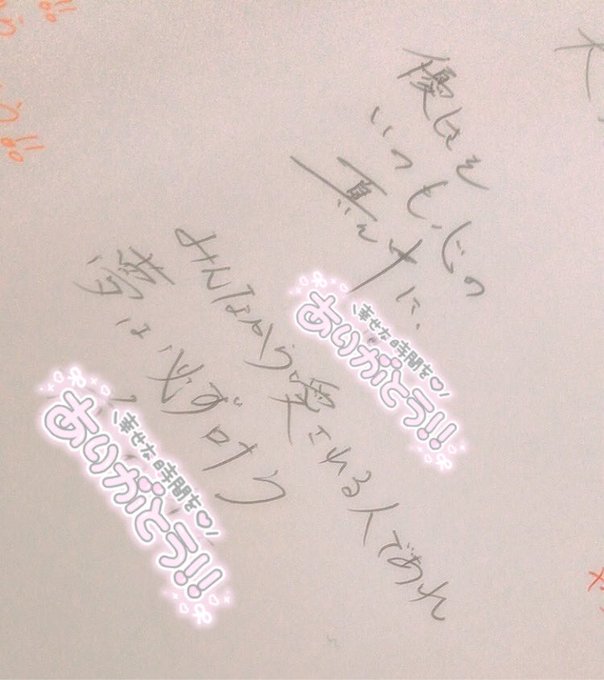 優しさを
いつも心の
真ん中に、
みんなから愛される人であれ
夢は必ず叶う
\幸せな時間を♡/
ありがとう!!
\幸せな時間を♡/
ありがとう!!